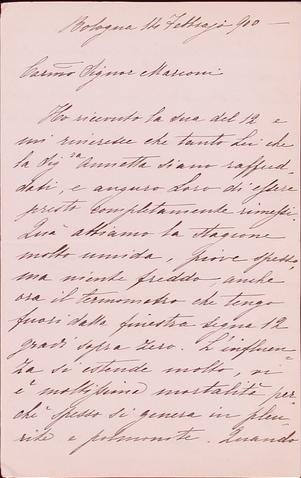 Bologna 14 Febbrajo 900 —
Carmo Signor Marconi
Ho ricevuto la sua del 12 e
mi rincresce che tanto Lei che
la Sigra Annetta siano raffred-
dati, e auguro Loro di essere
presto completamente rimessi.
Quà abbiamo la stagione
molto umida, piove spesso,
ma niente freddo, anche
ora il termometro che tengo
fuori dalla finestra segna 12
gradi sopra zero. L'influen-
za si estende molto, vi
è moltissima mortalità per-
chè spesso si genera in pleu-
rite e polmonite. Quando